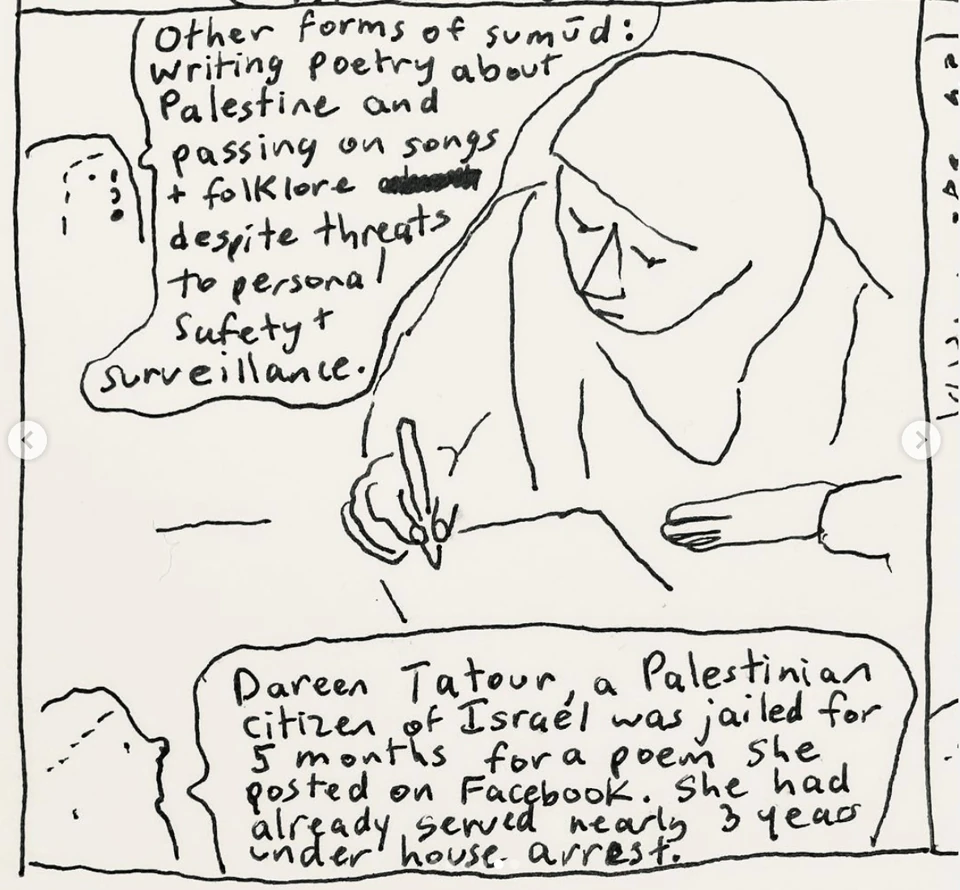 Other forms of sumūd:
writing poetry about
Palestine and
passing on songs
+ folklore
despite threats
to personal
safety +
surveillance.
Dareen Tatour, a Palestinian
citizen of Israel was jailed for
5 months for a poem she
posted on Facebook. She had
already served nearly 3 years
under house arrest.